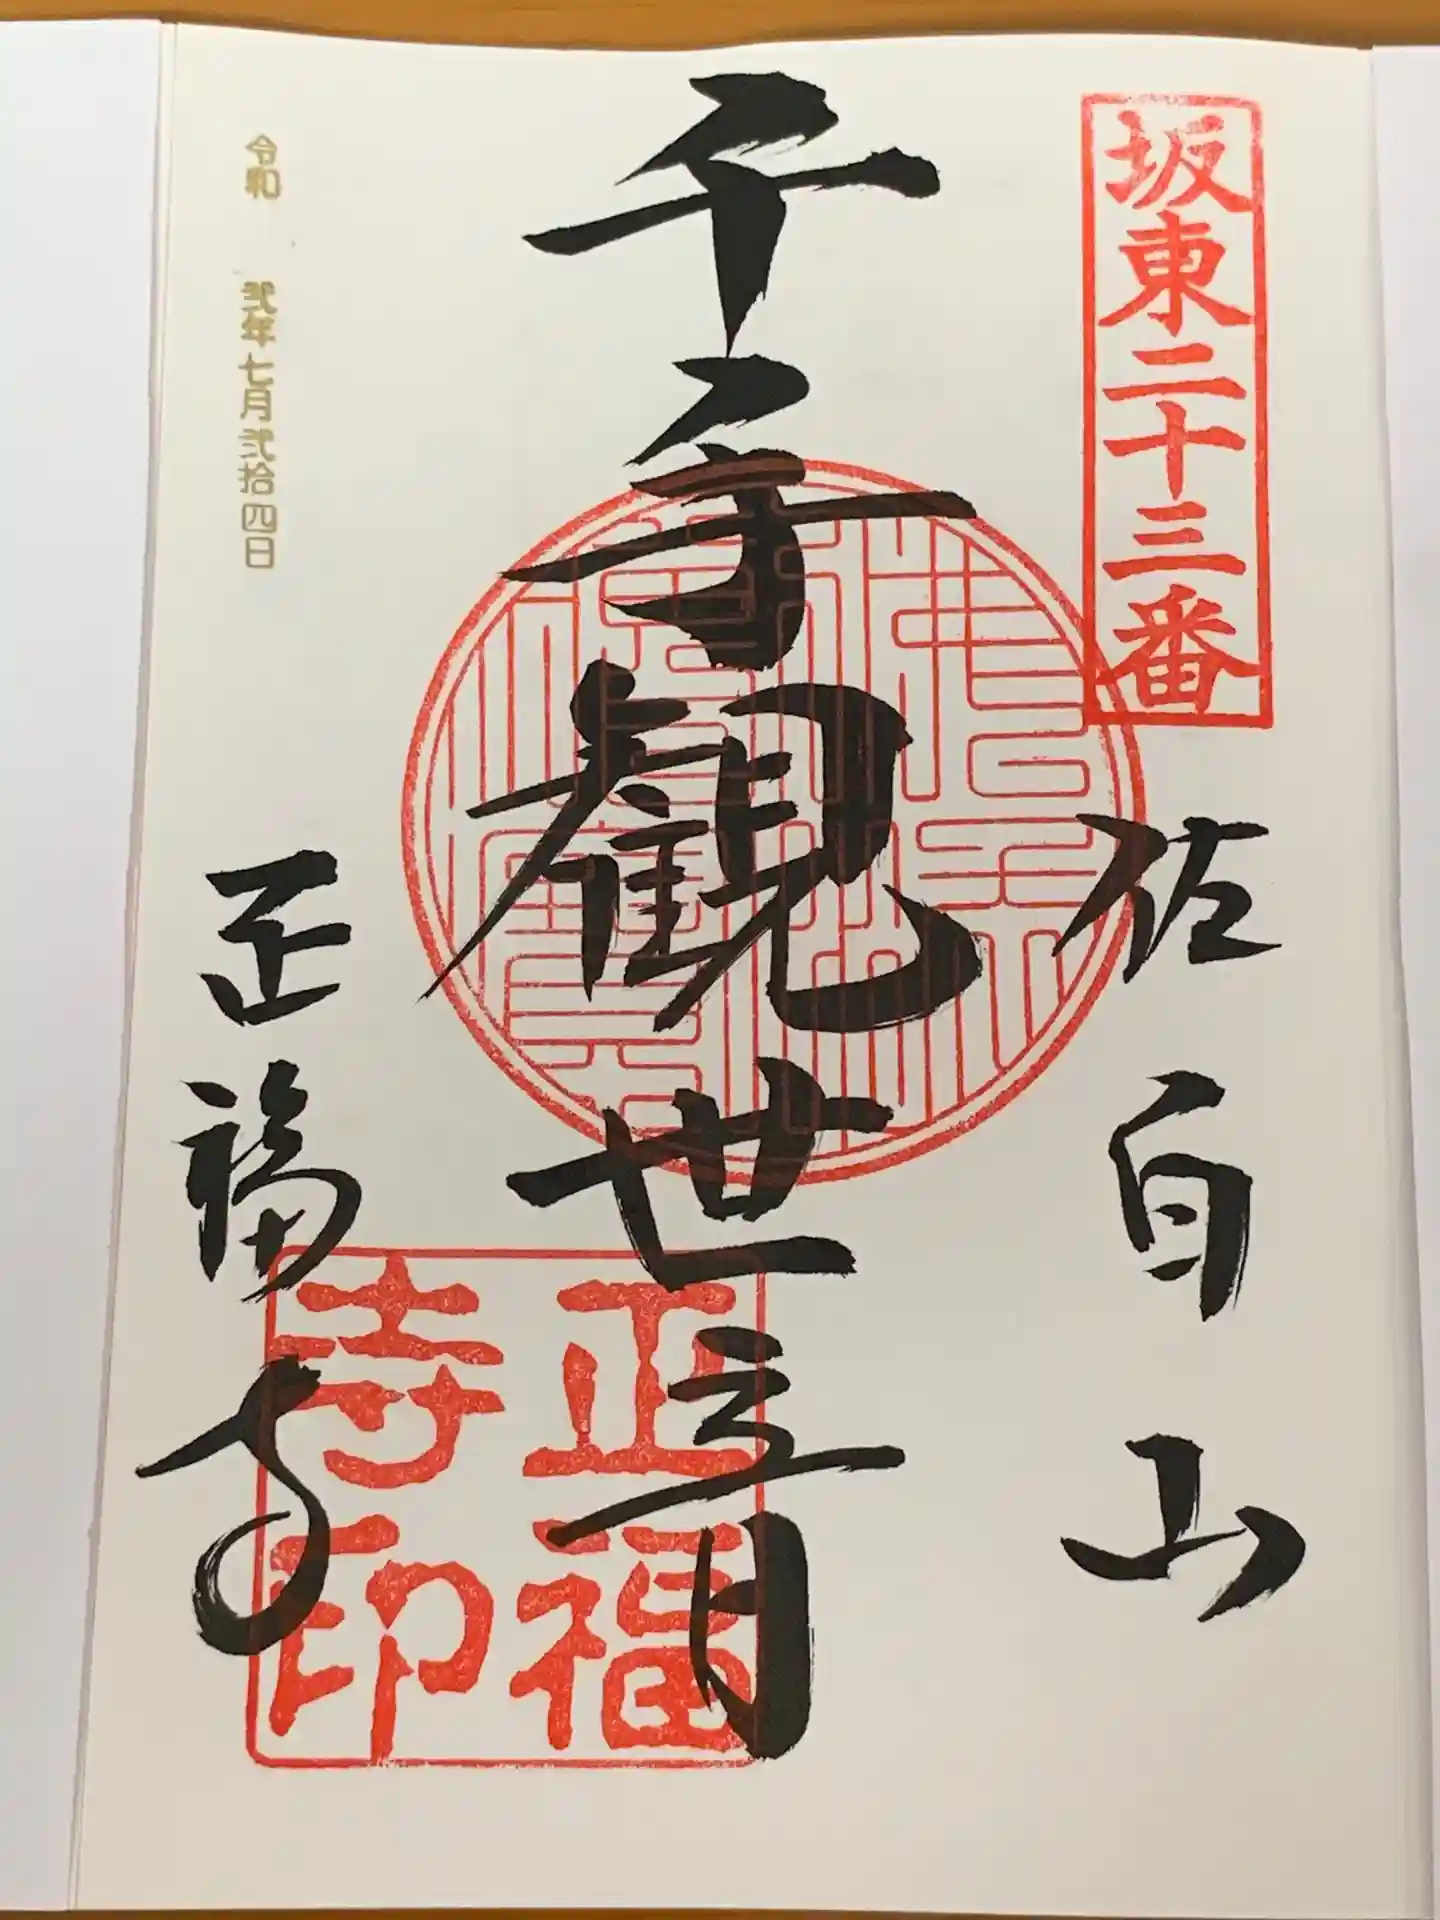 坂東二十三番
佐白山
千手観世音
正福寺
正福寺印
令和 弐年七月弐拾四日